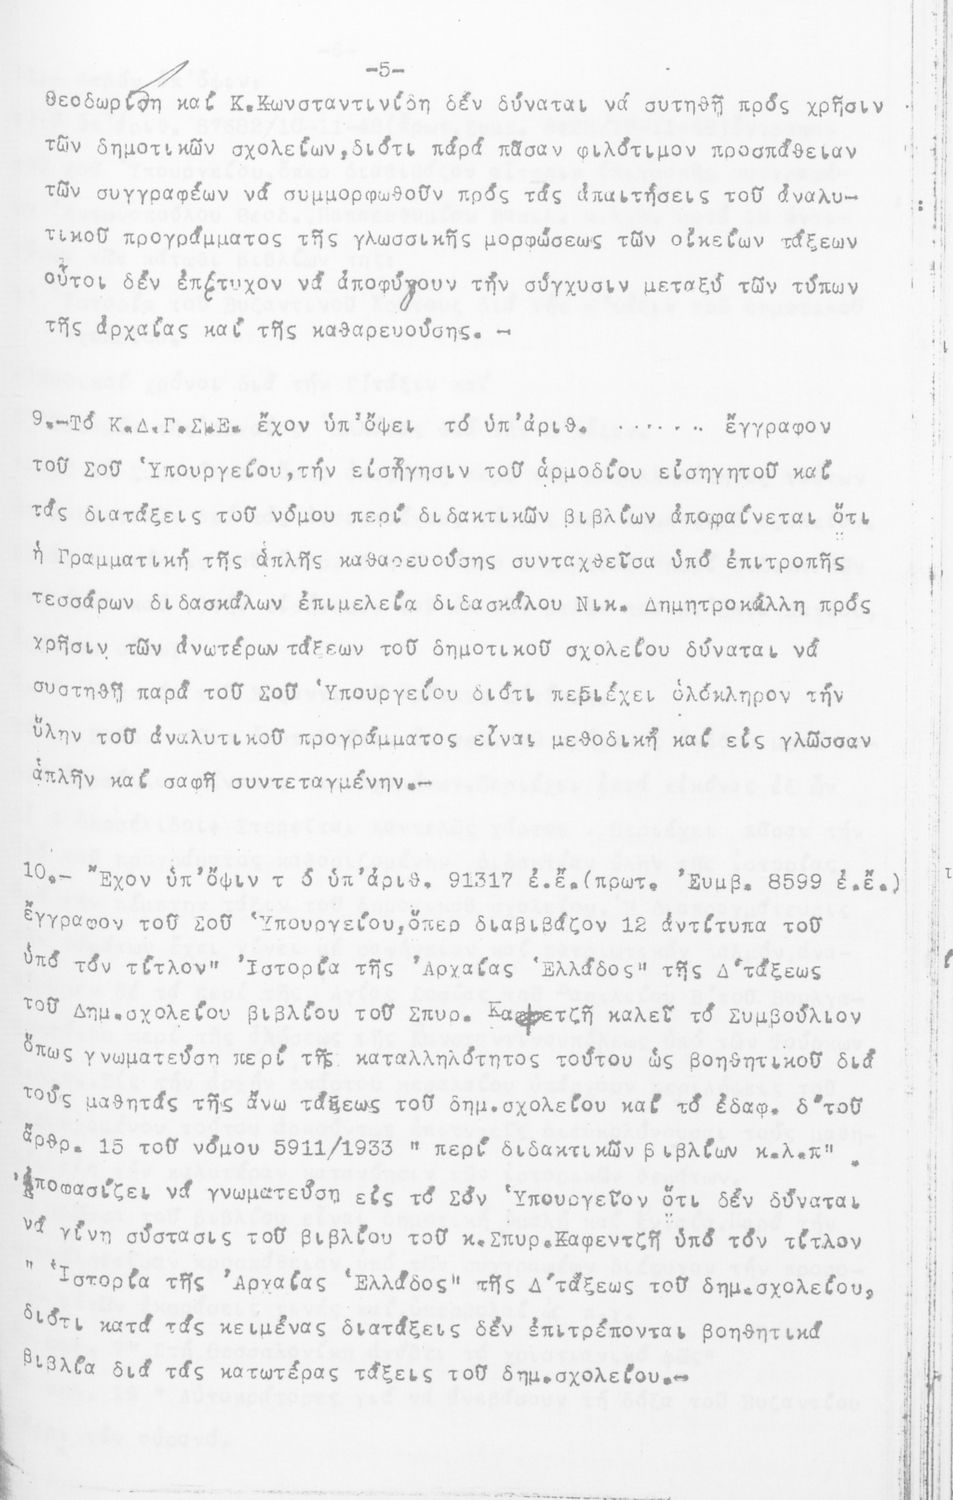 -5-
Θεοδωρίδη καί Κ.Κωνσταντινίδη δέν δύναται νά συτηθῇ πρός χρῆσιν
τῶν δημοτικῶν σχολείων,διότι πάρά πᾶσαν φιλότιμον προσπάθειαν
τῶν συγγραφέων νά συμμορφωθοῦν πρός τάς ἀπαιτήσεις τοῦ ἀναλυ-
τικοῦ προγράμματος τῆς γλωσσικῆς μορφώσεως τῶν οἰκείων τάξεων
οὗτοι δέν ἐπέτυχον νά ἀποφύγουν τήν σύγχυσιν μεταξύ τῶν τύπων
τῆς ἀρχαίας καί τῆς καθαρευούσης. -
9.-Τό Κ.Δ.Γ.Σ.Ε. ἔχον ὑπ'ὄψει τό ὑπ'ἀριθ. ....... ἔγγραφον
τοῦ Σοῦ Ὑπουργείου,τήν εἰσήγησιν τοῦ ἁρμοδίου εἰσηγητοῦ καί
τάς διατάξεις τοῦ νόμου περί διδακτικῶν βιβλίων ἀποφαίνεται ὅτι
ἡ Γραμματική τῆς ἁπλῆς καθαρευούσης συνταχθεῖσα ὑπό ἐπιτροπῆς
τεσσάρων διδασκάλων ἐπιμελεία διδασκάλου Νικ. Δημητροκάλλη πρός
χρῆσιν τῶν ἀνωτέρων τάξεων τοῦ δημοτικοῦ σχολείου δύναται νά
συστηθῇ παρά τοῦ Σοῦ Ὑπουργείου διότι περιέχει ὁλόκληρον τήν
ὕλην τοῦ ἀναλυτικοῦ προγράμματος εἶναι μεθοδική καί εἰς γλῶσσαν
ἁπλῆν καί σαφῆ συντεταγμένην.-
10.- Ἔχον ὑπ'ὄψιν τ ό ὑπ'ἀριθ. 91317 ἐ.ἔ.(πρωτ. Ἐυμβ. 8599 ἐ.ἔ.)
ἔγγραφον τοῦ Σοῦ Ὑπουργείου,ὅπερ διαβιβάζον 12 ἀντίτυπα τοῦ
ὑπό τόν τίτλον" Ἱστορία τῆς Ἀρχαίας Ἑλλάδος" τῆς Δ'τάξεως
τοῦ Δημ.σχολείου βιβλίου τοῦ Σπυρ. Καφετζῆ καλεῖ τό Συμβούλιον
ὅπως γνωματεύση περί τῆς καταλληλότητος τούτου ὡς βοηθητικοῦ διά
τούς μαθητάς τῆς ἄνω τάξεως τοῦ δημ.σχολείου καί τό ἐδαφ. δ'τοῦ
ἄρθρ. 15 τοῦ νόμου 5911/1933 " περί διδακτικῶν βιβλίων κ.λ.π" .
Ἀποφασίζει νά γνωματεύση εἰς τό Σόν Ὑπουργεῖον ὅτι δέν δύναται
νά γίνη σύστασις τοῦ βιβλίου τοῦ κ.Σπυρ.Καφεντζῆ ὑπό τόν τίτλον
" Ἱστορία τῆς Ἀρχαίας Ἑλλάδος" τῆς Δ'τάξεως τοῦ δημ.σχολείου,
διότι κατά τάς κειμένας διατάξεις δέν ἐπιτρέπονται βοηθητικά
βιβλία διά τάς κατωτέρας τάξεις τοῦ δημ.σχολείου.-